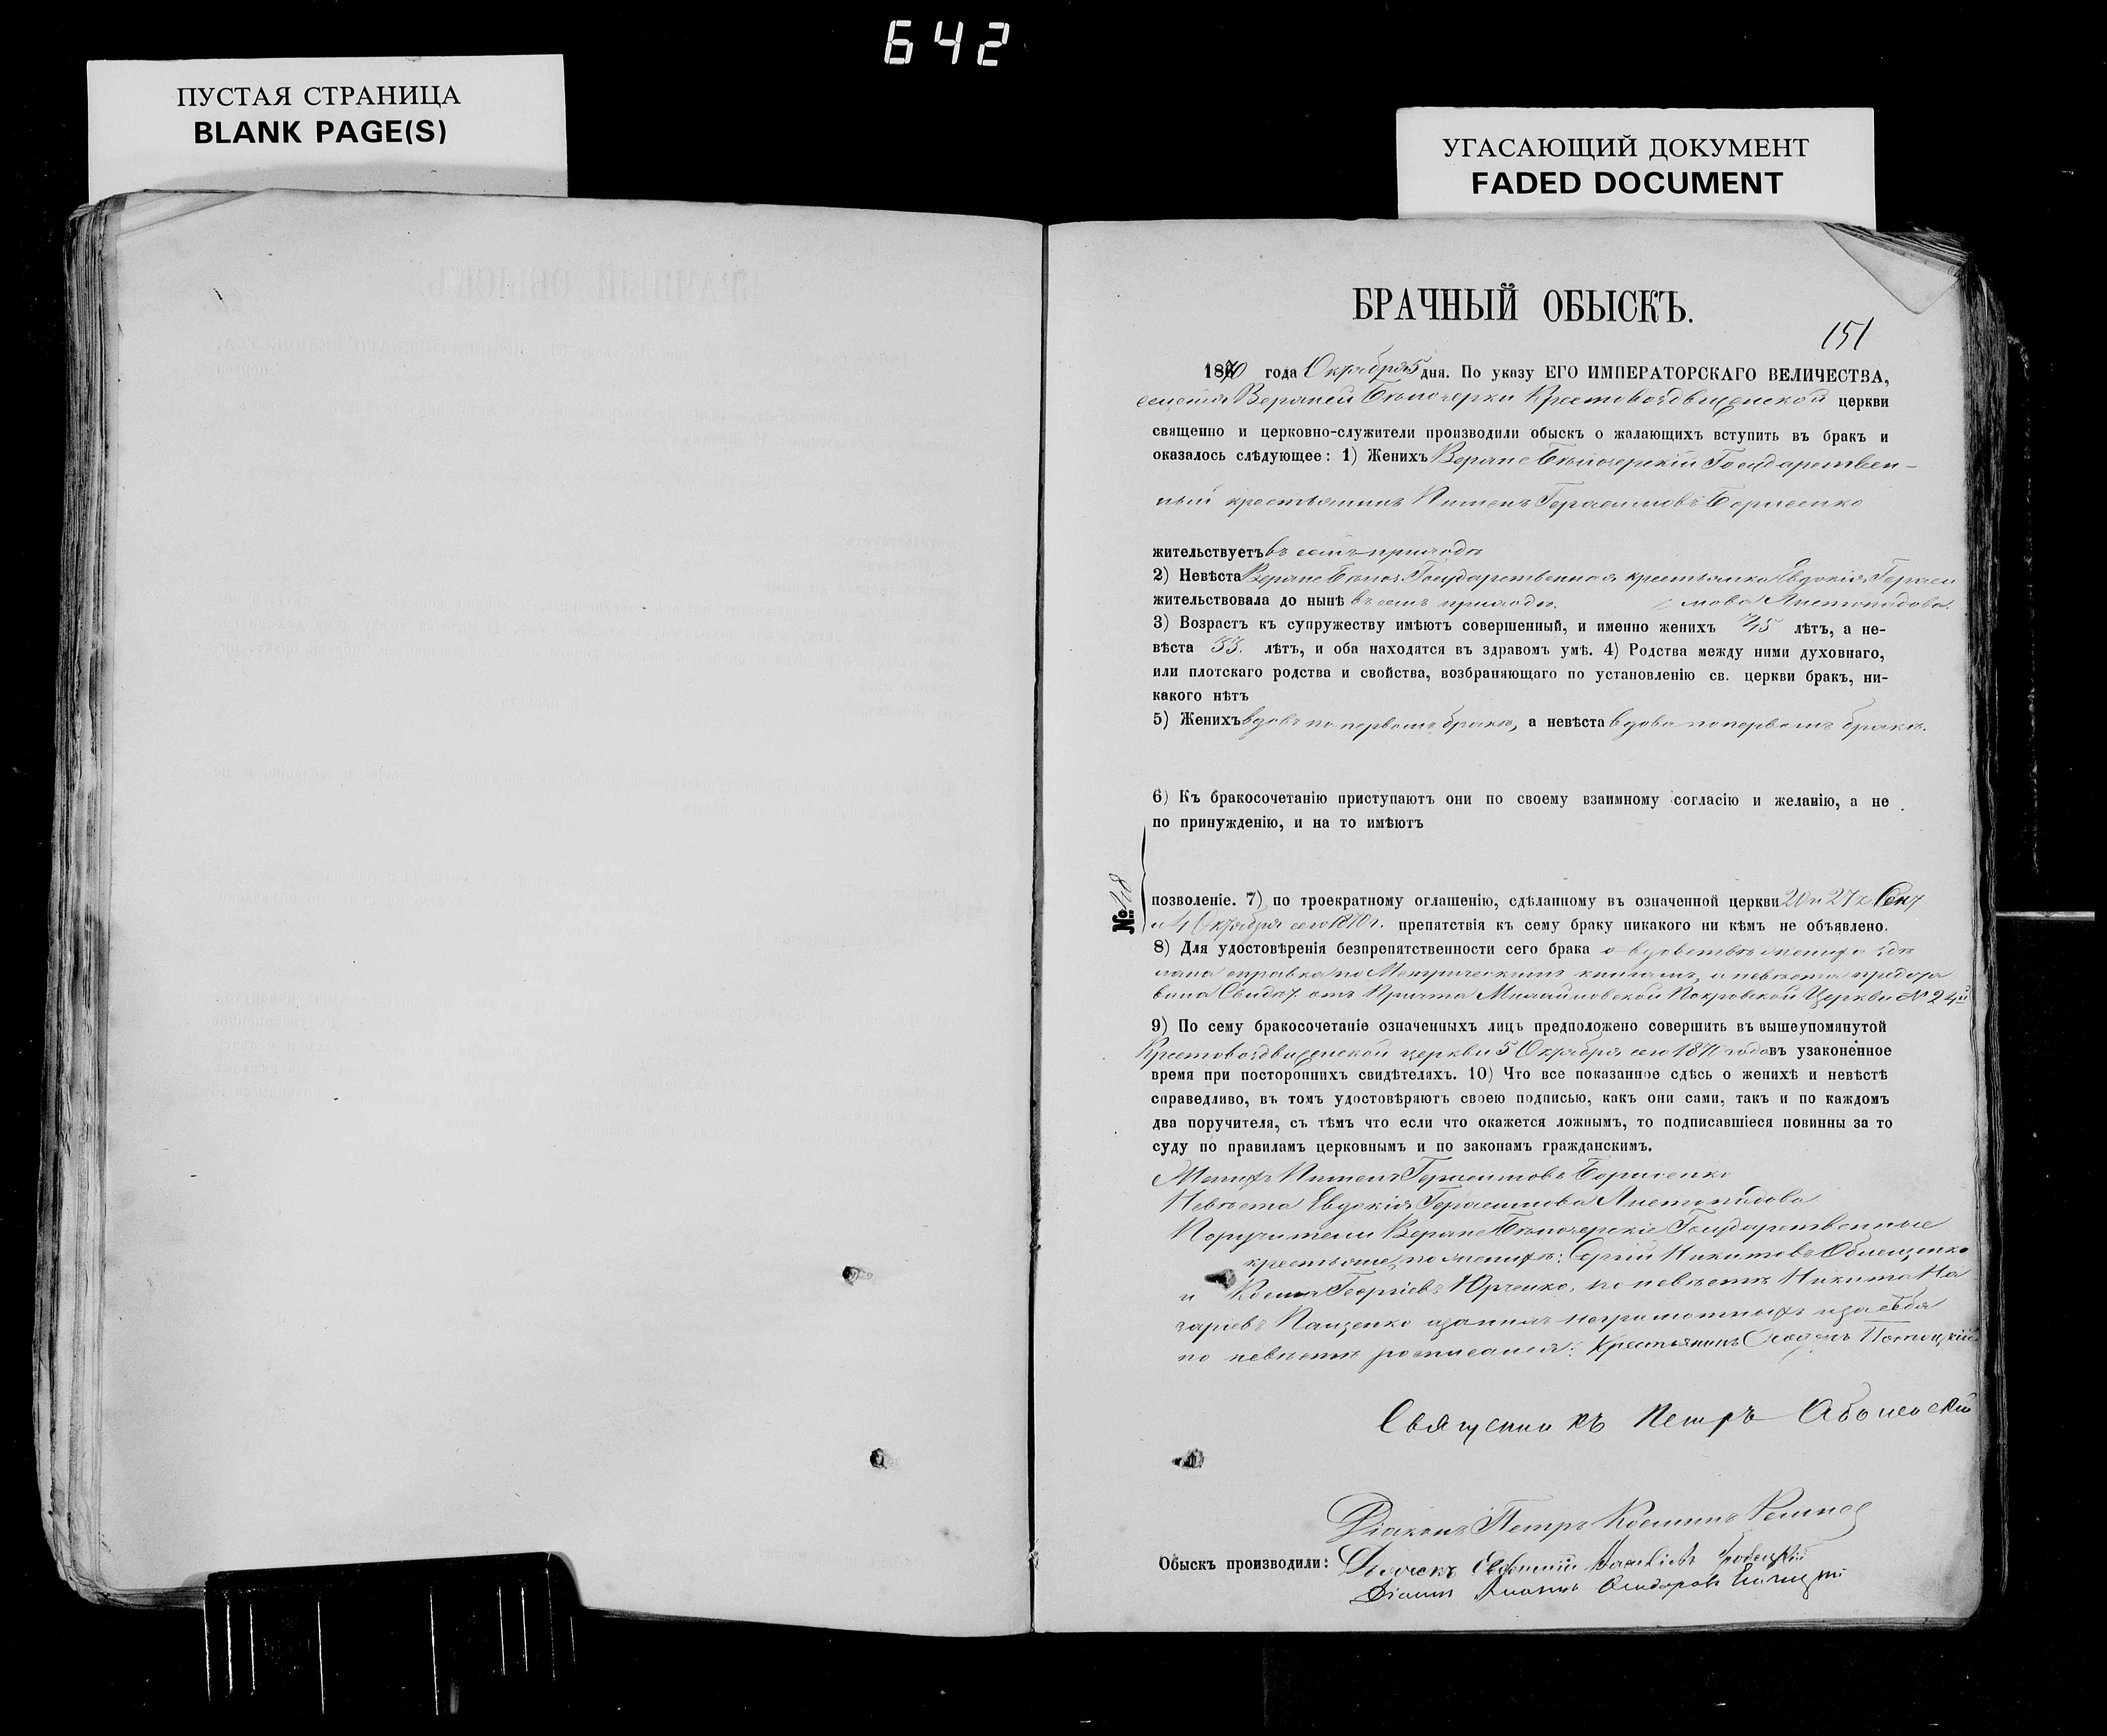 642
ПУСТАЯ СТРАНИЦА
BLANK PAGE(S)
УГАСАЮЩИЙ ДОКУМЕНТ
FADED DOCUMENT
БРАЧНЫЙ ОБЫСКЪ.
151
1870 года Октября 5 дня. По указу ЕГО ИМПЕРАТОРСКАГО ВЕЛИЧЕСТВА,
селенія Верхней Бѣлозерки Крестовоздвиженской церкви
священно и церковно-служители производили обыскъ о жалающихъ вступить въ бракъ и
оказалось слѣдующее: 1) Женихъ Верхне Бѣлозерскій Государствен-
ный крестьянинъ Пименъ Герасимовъ Борисенко
жительствуетъ въ семъ приходѣ
2) Невѣста Верхне Бѣлоз. Государственная крестьянка Евдокія Гераси
жительствовала до нынѣ въ семъ приходѣ. мова Листопадова.
3) Возрастъ къ супружеству имѣютъ совершенный, и именно женихъ 45 лѣтъ, а не-
вѣста 33. лѣтъ, и оба находятся въ здравомъ умѣ. 4) Родства между ними духовнаго,
или плотскаго родства и свойства, возбраняющаго по установленію св. церкви бракъ, ни-
какого нѣтъ
5) Женихъ вдовъ по первомъ бракѣ, а невѣста вдова по первомъ бракѣ.
6) Къ бракосочетанію приступаютъ они по своему взаимному согласію и желанію, а не
по принужденію, и на то имѣютъ
№ 48
позволеніе. 7) по троекратному оглашенію, сдѣланному въ означенной церкви 20 и 27 х Сент
и 4 Октября сего 1870 г. препятствія къ сему браку никакого ни кѣмъ не объявлено.
8) Для удостовѣренія безпрепятственности сего брака о вдовствѣ жениха сдѣ
лана справка по Метрическимъ книгамъ, а невѣста предста
вила Свидѣт. отъ Причта Михайловской Покровской Церкви № 24й
9) По сему бракосочетаніе означенныхъ лицъ предположено совершить въ вышеупомянутой
Крестовоздвиженской церкви 5 Октября сего 1870 года въ узаконенное
время при постороннихъ свидѣтеляхъ. 10) Что все показанное сдѣсь о женихѣ и невѣстѣ
справедливо, въ томъ удостовѣряютъ своею подписью, какъ они сами, такъ и по каждомъ
два поручителя, съ тѣмъ что если что окажется ложнымъ, то подписавшіеся повинны за то
суду по правиламъ церковнымъ и по законамъ гражданскимъ.
Женихъ Пименъ Герасимовъ Борисенко
Невѣста Евдокія Герасимова Листопадова
Поручители Верхне Бѣлозерскіе Государственные
крестьяне, по женихѣ: Сергій Никитовъ
и Косма Георгіевъ Юрченко, по невѣстѣ Никита На
заріевъ Пащенко а за нихъ неграмотныхъ и за себя
по невѣстѣ росписался: Крестьянинъ
Священникъ Петръ
Діаконъ Петръ Косминъ
Обыскъ производили: